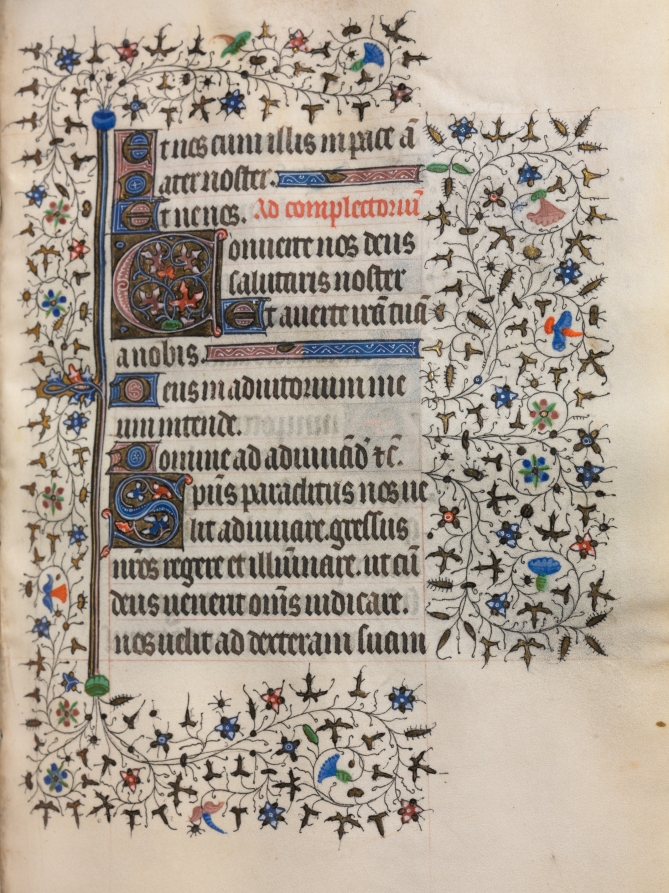 Et nes cum illis in pace ā
Pater noster.
Et ne nos. Ad complectoriū
Conuerte nos deus
salutaris noster
Et auerte irā tuā
a nobis.
Deus in adiutorium me
um intende.
Domine ad adiuuād' ⁊c̄.
Spūs paraclitus nos ue
lit adiuuare. gressus
nr̄os regere et illūinare. ut cū
deus uenerit om̄s iudicare.
nos uelit ad dexteram suam